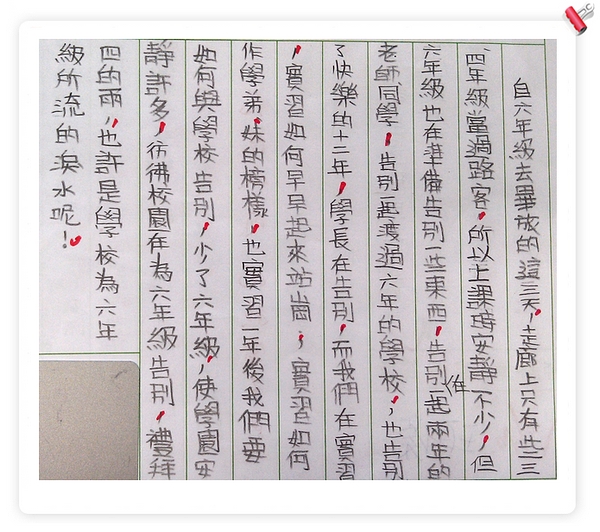 自六年級去畢旅的這三天,走廊上只有些三
四年級當過路客,所以上課時安靜不少,但
六年級也在準備告別一些東西,告別在一起兩年的
老師同學,告別一起渡過六年的學校,也告別
了快樂的十二年,學長在告別,而我們在實習
,實習如何早早起來站崗;實習如何
作學弟、妹的榜樣,也實習一年後我們要
如何與學校告別,少了六年級,使學園安
靜許多,彷彿校園在為六年級告別,禮拜
四的雨,也許是學校為六年
級所流的淚水呢!